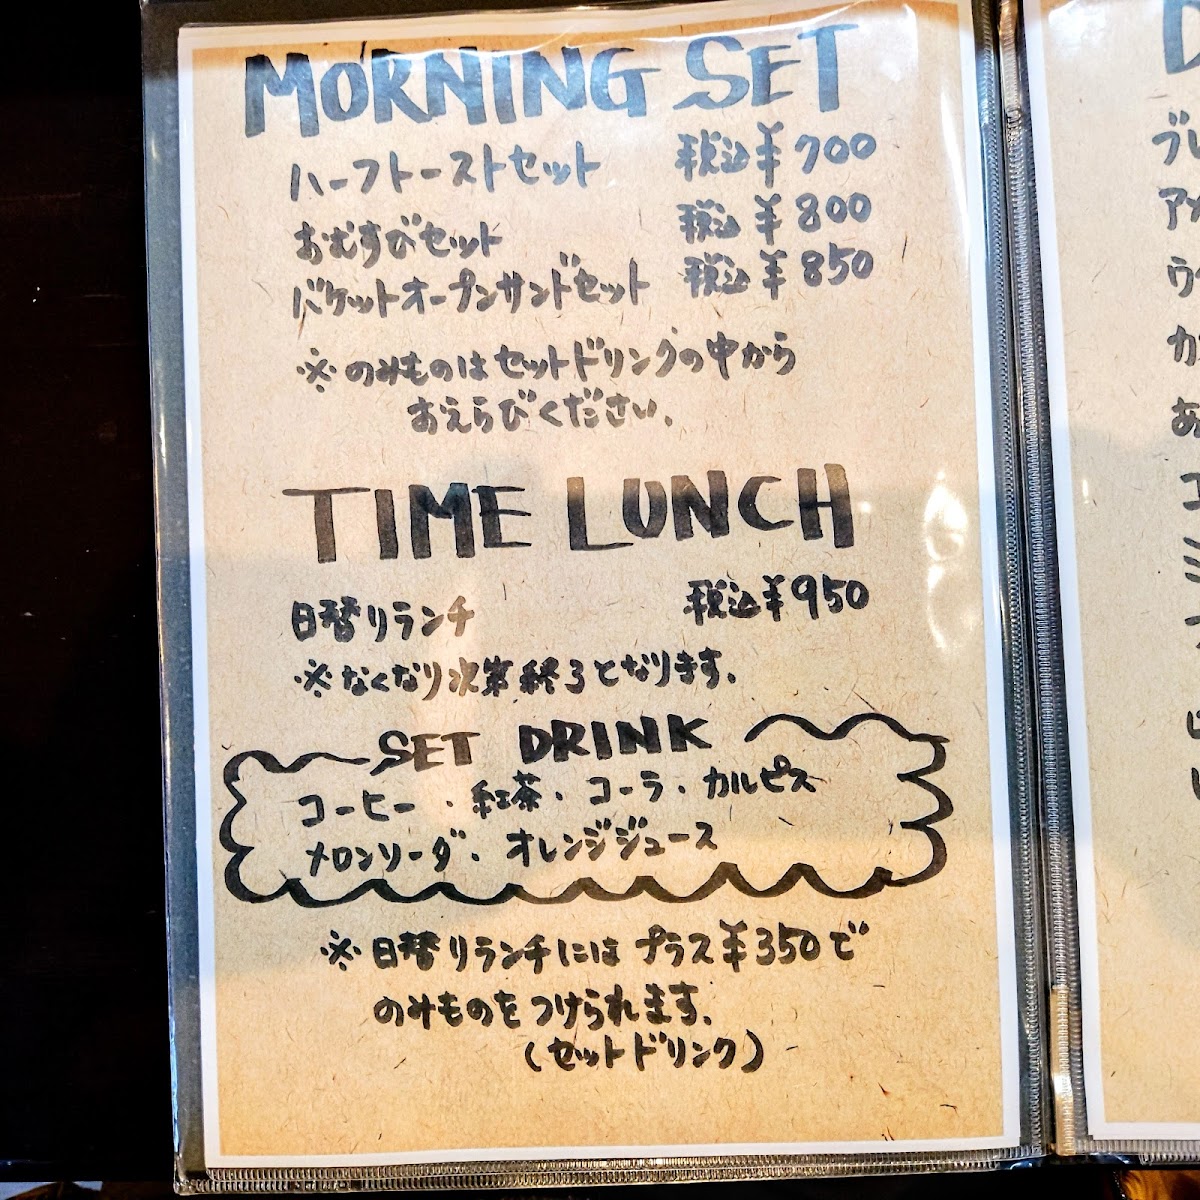 MORNING SET
ハーフトーストセット 税込¥700
おむすびセット 税込¥800
バケットオープンサンドセット 税込¥850
※のみものはセットドリンクの中から
おえらびください。
TIME LUNCH
日替りランチ 税込¥950
※なくなり次第終了となります。
SET DRINK
コーヒー・紅茶・コーラ・カルピス
メロンソーダ・オレンジジュース
※日替りランチにはプラス¥350で
のみものをつけられます。
(セットドリンク)